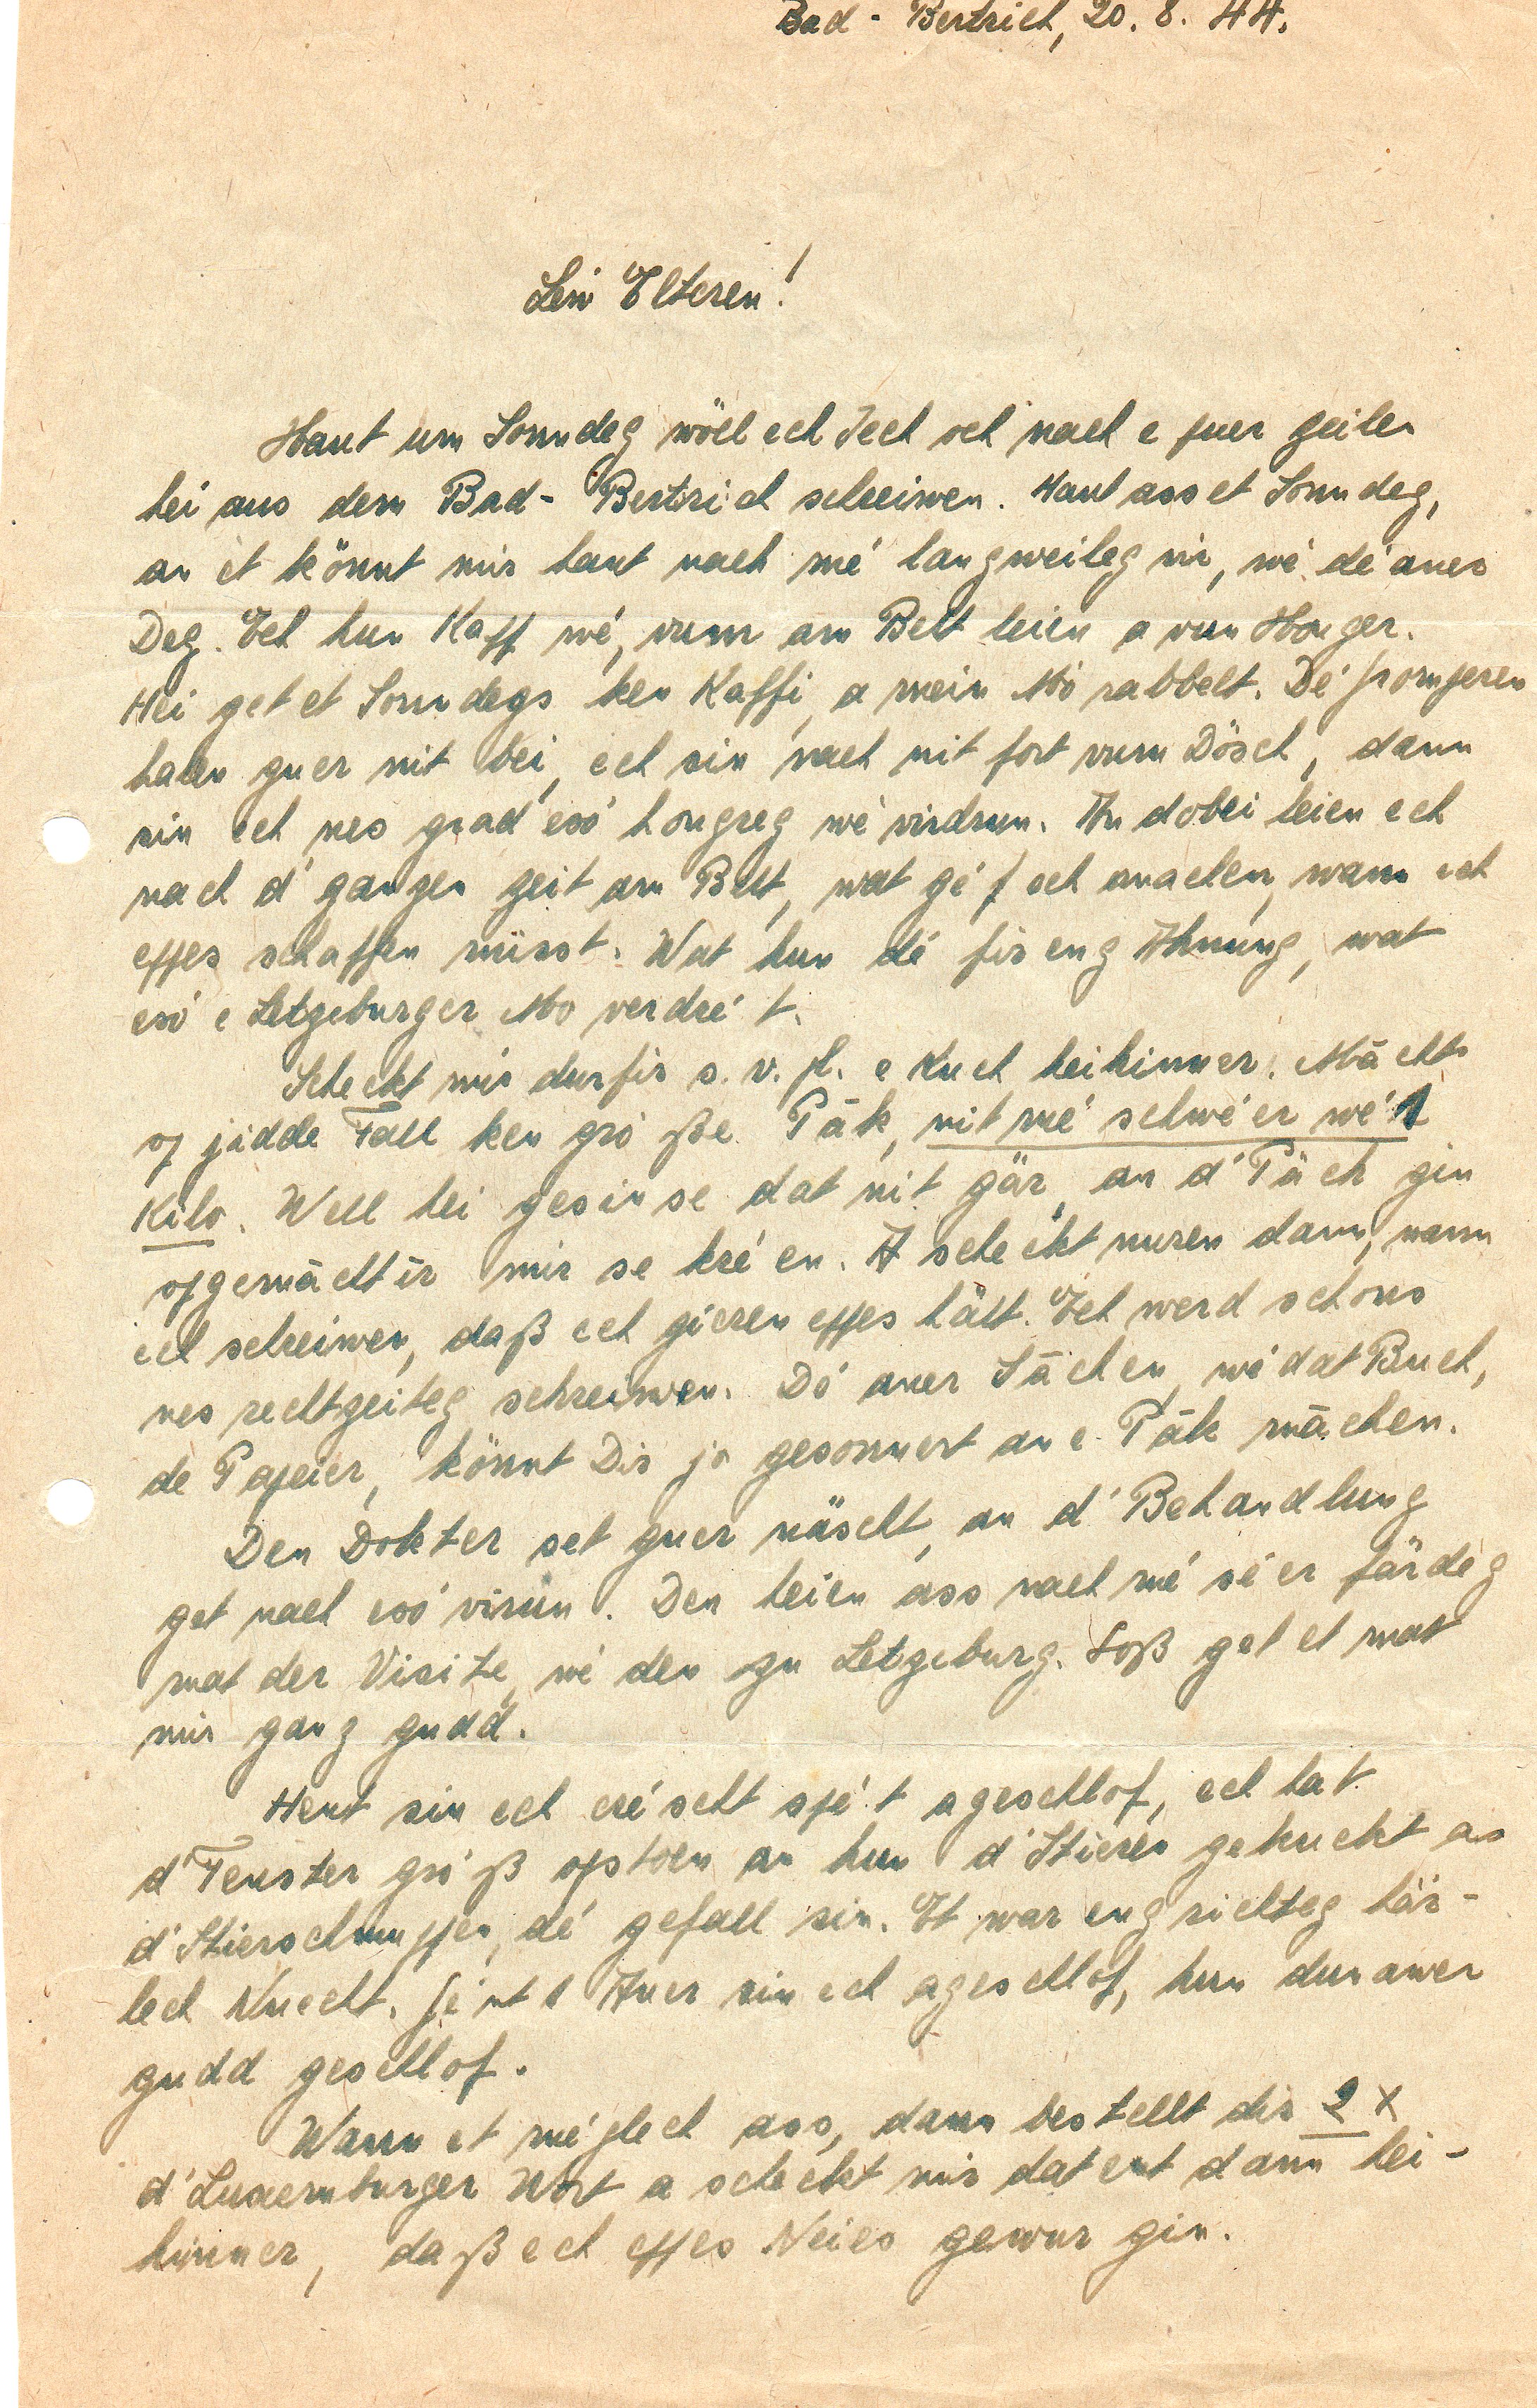 Bad-Bertrich, 20. 8. 44.
Leiw Elteren!
Haut um Sonndeg wöll ech Iech och nach e puer Zeilen
hei aus dem Bad-Bertrich schreiwen. Haut ass et Sonndeg,
an et könnt mir haut nach mé langweileg vir, wé dé aner
Deg. Ech hun Kapp wé, vum am Bett leien a vun Honger.
Hei get et Sonndegs ken Kaffi, a mein Mo rabbelt. Dé Gromperen
halen guer nit bei, ech sin nach nit fort vum Dösch, dann
sin ech nes grad esó hongreg wé virdrun. An dobei leien ech
nach d'ganzen Zeit am Bett, wat géf ech maachen, wann ech
eppes schaffen misst. Wat hun dé fir eng Ahnung, wat
esó e Letzeburger Mo verdré t.
Scheckt mir durfir s. v. pl. e Kuch heihinner. Mächt
op jidde Fall ken gró ße Päk, nit mé schwéer wé 1
Kilo. Well hei gesin se dat nit gär, an d'Päck gin
opgemächt ir mir se kréen. A scheckt nuren dann, wann
ech schreiwen, daß ech gieren eppes hätt. Ech werd schons
nes rechtzeiteg schreiwen. Dó aner Sächen, wé dat Buch,
de Papeier, könnt Dir jo gesonnert an e Päk mächen.
Den Dokter set guer näscht, an d'Behandlung
get nach esó virun. Den heien ass nach mé séer färdeg
mat der Visite, wé den zu Letzeburg. Soß get et mat
mir ganz gudd.
Hent sin ech eréscht spét ageschlof, ech hat
d'Fenster gró ß opstoen an hun d'Stieren gekuckt an
d'Stierschnuppen, dé gefall sin. Et war eng richteg här-
lech Nuecht. Géint 1 Auer sin ech ageschlof, hun dun awer
gudd geschlof.
Wann et méglech ass, dann bestellt dir 2 x
d'Luxemburger Wort a scheckt mir dat ent dann hei-
hinner, daß ech eppes Neies gewur gin.